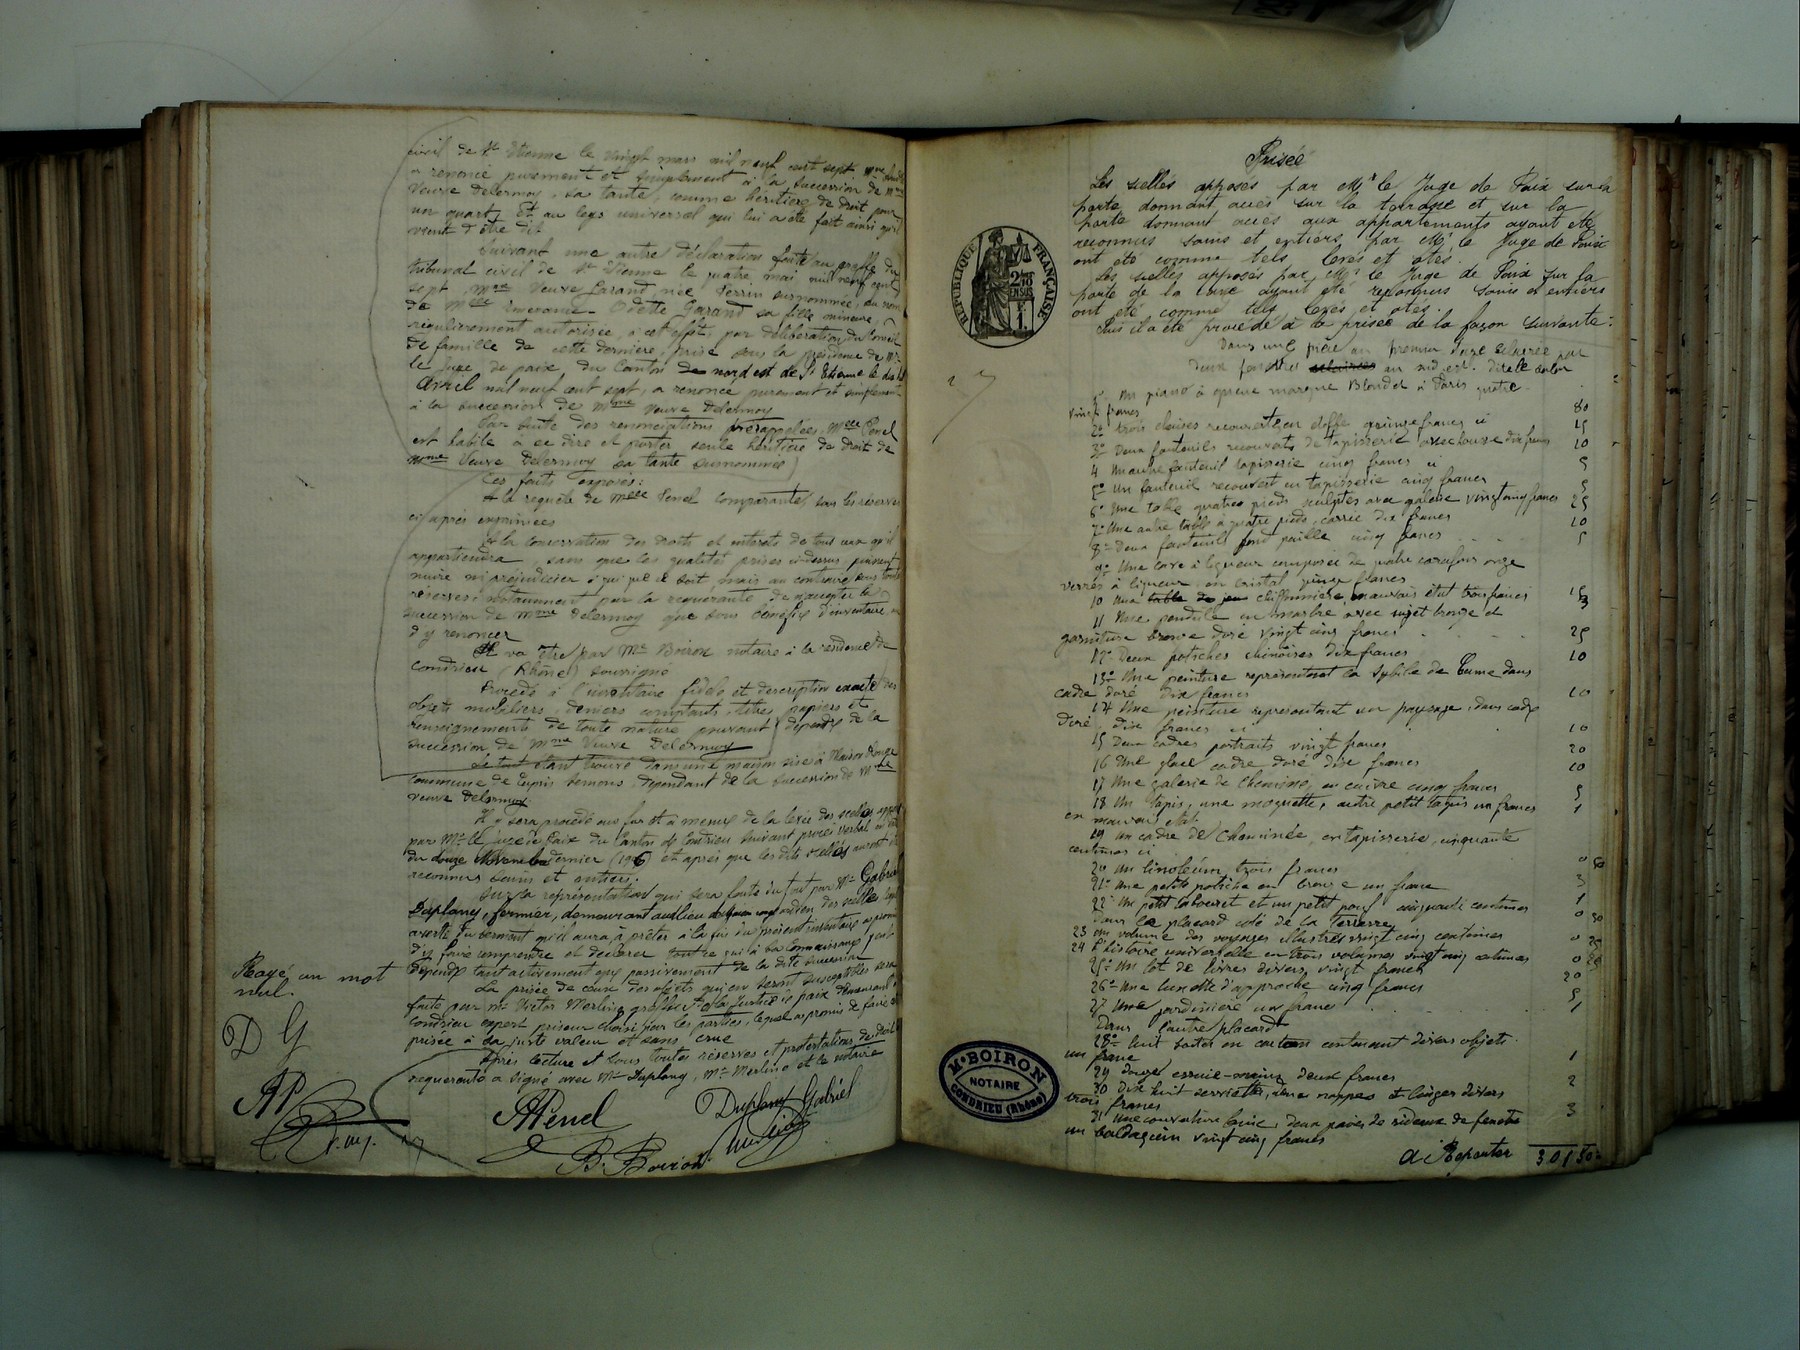 civil de St Etienne le vingt mars mil neuf cent sept Mme
a renoncé purement et simplement à la succession de Mme
Veuve Delermoy, sa tante, comme héritière de droit pour
un quart, et au legs universel qui lui a été fait ainsi qu'il
vient d'être dit
Suivant une autre déclaration faite au greffe du
tribunal civil de St Etienne le quatre mai mil neuf cent
sept, Mme Veuve Garand née Perrin susnommée, au nom
de Mlle Odette Garand sa fille mineure,
régulièrement autorisée, à cet effet, par délibération du Conseil
de famille de cette dernière, prise sous la présidence de Mr
le Juge de paix du Canton de nord est de St Etienne le
Avril mil neuf cent sept, a renoncé purement et simplement
à la succession de Mme Veuve Delermoy
Par suite des renonciations prérappelées, Mlle Penel
est habile à se dire et porter seule héritière de droit de
Mme Veuve Delermoy sa tante susnommée
Ces faits exposés:
A la requête de Mlle Penel comparante, sous les réserves
ci après exprimées
A la conservation des droits et intérêts de tous ceux qu'il
appartiendra, sans que les qualités prises ci-dessus puissent
nuire ni préjudicier à qui que ce soit mais au contraire sous toutes
réserves, notamment par la requérante de n'accepter la
succession de Mme Delermoy que sous bénéfice d'inventaire ou
d'y renoncer
Il va être par Me Boiron notaire à la résidence de
Condrieu (Rhône) soussigné
Procédé à l'inventaire fidèle et description exacte des
objets mobiliers, deniers comptants, titres, papiers et
renseignements de toute nature pouvant dépendre de la
succession de Mme Veuve Delermoy
Le tout étant trouvé dans une maison sise à Maison Rouge
commune de Tupin Semons dépendant de la succession de Mme
veuve Delermoy
Il y sera procédé au fur et à mesure de la levée des scellés apposés
par Mr le Juge de Paix du Canton de Condrieu suivant procès verbal en date
du douze Novembre dernier (1906) et après que les dits scellés auront été
reconnus sains et entiers.
Sur la représentation qui sera faite du tout par Mr Gabriel
Duplany, fermier, demeurant au lieu de Maison rouge gardien des scellés lequel
averti du serment qu'il aura à prêter à la fin du présent inventaire a promis
d'y faire comprendre et déclarer tout ce qui à sa connaissance peut
dépendre tant activement que passivement de la dite succession
La prisée de ceux des objets qui en seront susceptibles sera
faite par Mr Victor Merlin, greffier de la Justice de paix demeurant à
Condrieu expert priseur choisi par les parties, lequel a promis de faire cette
prisée à sa juste valeur et sans crue
Après lecture et sous toutes réserves et protestations de droit la
requérante a signé avec Mr Duplany, Mr Merlin et le notaire
Rayé un mot
nul.
D G
AP
APenel
Duplany Gabriel
B. Boiron
Prisée
Les scellés apposés par Mr le Juge de Paix sur la
porte donnant accès sur la terrasse et sur la
porte donnant accès aux appartements ayant été
reconnus sains et entiers par Mr le Juge de Paix
ont été comme tels levés et otés.
Les scellés apposés par Mr le Juge de Paix sur la
porte de la cave ayant été reconnus sains et entiers
ont été comme tels levés et otés.
Puis il a été procédé à la prisée de la façon suivante:
RÉPUBLIQUE FRANÇAISE
Dans une pièce au premier étage éclairée par
deux fenêtres au sud est. dite le salon
1° Un piano à queue marque Blondel à Paris quatre
vingt francs 80
2° trois chaises recouvertes en étoffe quinze francs ci 15
3° Deux fauteuils recouverts de tapisserie avec housse dix francs 10
4 Un autre fauteuil tapisserie cinq francs ci 5
5° Un fauteuil recouvert en tapisserie cinq francs 5
6° Une table quatre pieds sculptés avec galerie vingt cinq francs 25
7° Une autre table à quatre pieds, carrée dix francs 10
8° Deux fauteuils fond paille cinq francs 5
9° Une cave à liqueur composée de quatre carafons onze
verres à liqueur en cristal quinze francs 15
10 Une table de jeu chiffonnière mauvais état trois francs 3
11 Une pendule en marbre avec sujet bronze et
garniture bronze doré vingt cinq francs 25
12° Deux potiches chinoises dix francs 10
13° Une peinture représentant la Sybile de Cume dans
cadre doré dix francs 10
14 Une peinture représentant un paysage, dans cadre
doré, dix francs ci 10
15 Deux cadres portraits vingt francs 20
16 Une glace cadre doré dix francs 10
17 Une galerie de Cheminée, en cuivre cinq francs 5
18 Un tapis, une moquette, autre petit tapis un francs 1
en mauvais état.
19 Un cadre de Cheminée, en tapisserie, cinquante
centimes ci 0 50
20 Un linoléum, trois francs 3
21° Une petite potiche en bronze un franc 1
22° Un petit tabouret et un petit pouf cinquante centimes 0 50
Dans le placard coté de la terrasse
23 un volume des voyages illustrés vingt cinq centimes 0 25
24 l'histoire universelle en trois volumes vingt cinq centimes 0 25
25° Un lot de livres divers, vingt francs 20
26° Une lunette d'approche cinq francs 5
27 Une jardinière un franc 1
Dans l'autre placard
28° huit boites en carton contenant divers objets.
un franc 1
29 douze essuie-mains deux francs 2
30 Dix huit serviettes, deux nappes et linges divers
trois francs 3
31 Une couverture laine, deux paires de rideaux de fenêtre
un baldaquin vingt cinq francs
à Reporter 301 50
Me BOIRON
NOTAIRE
CONDRIEU (Rhône)